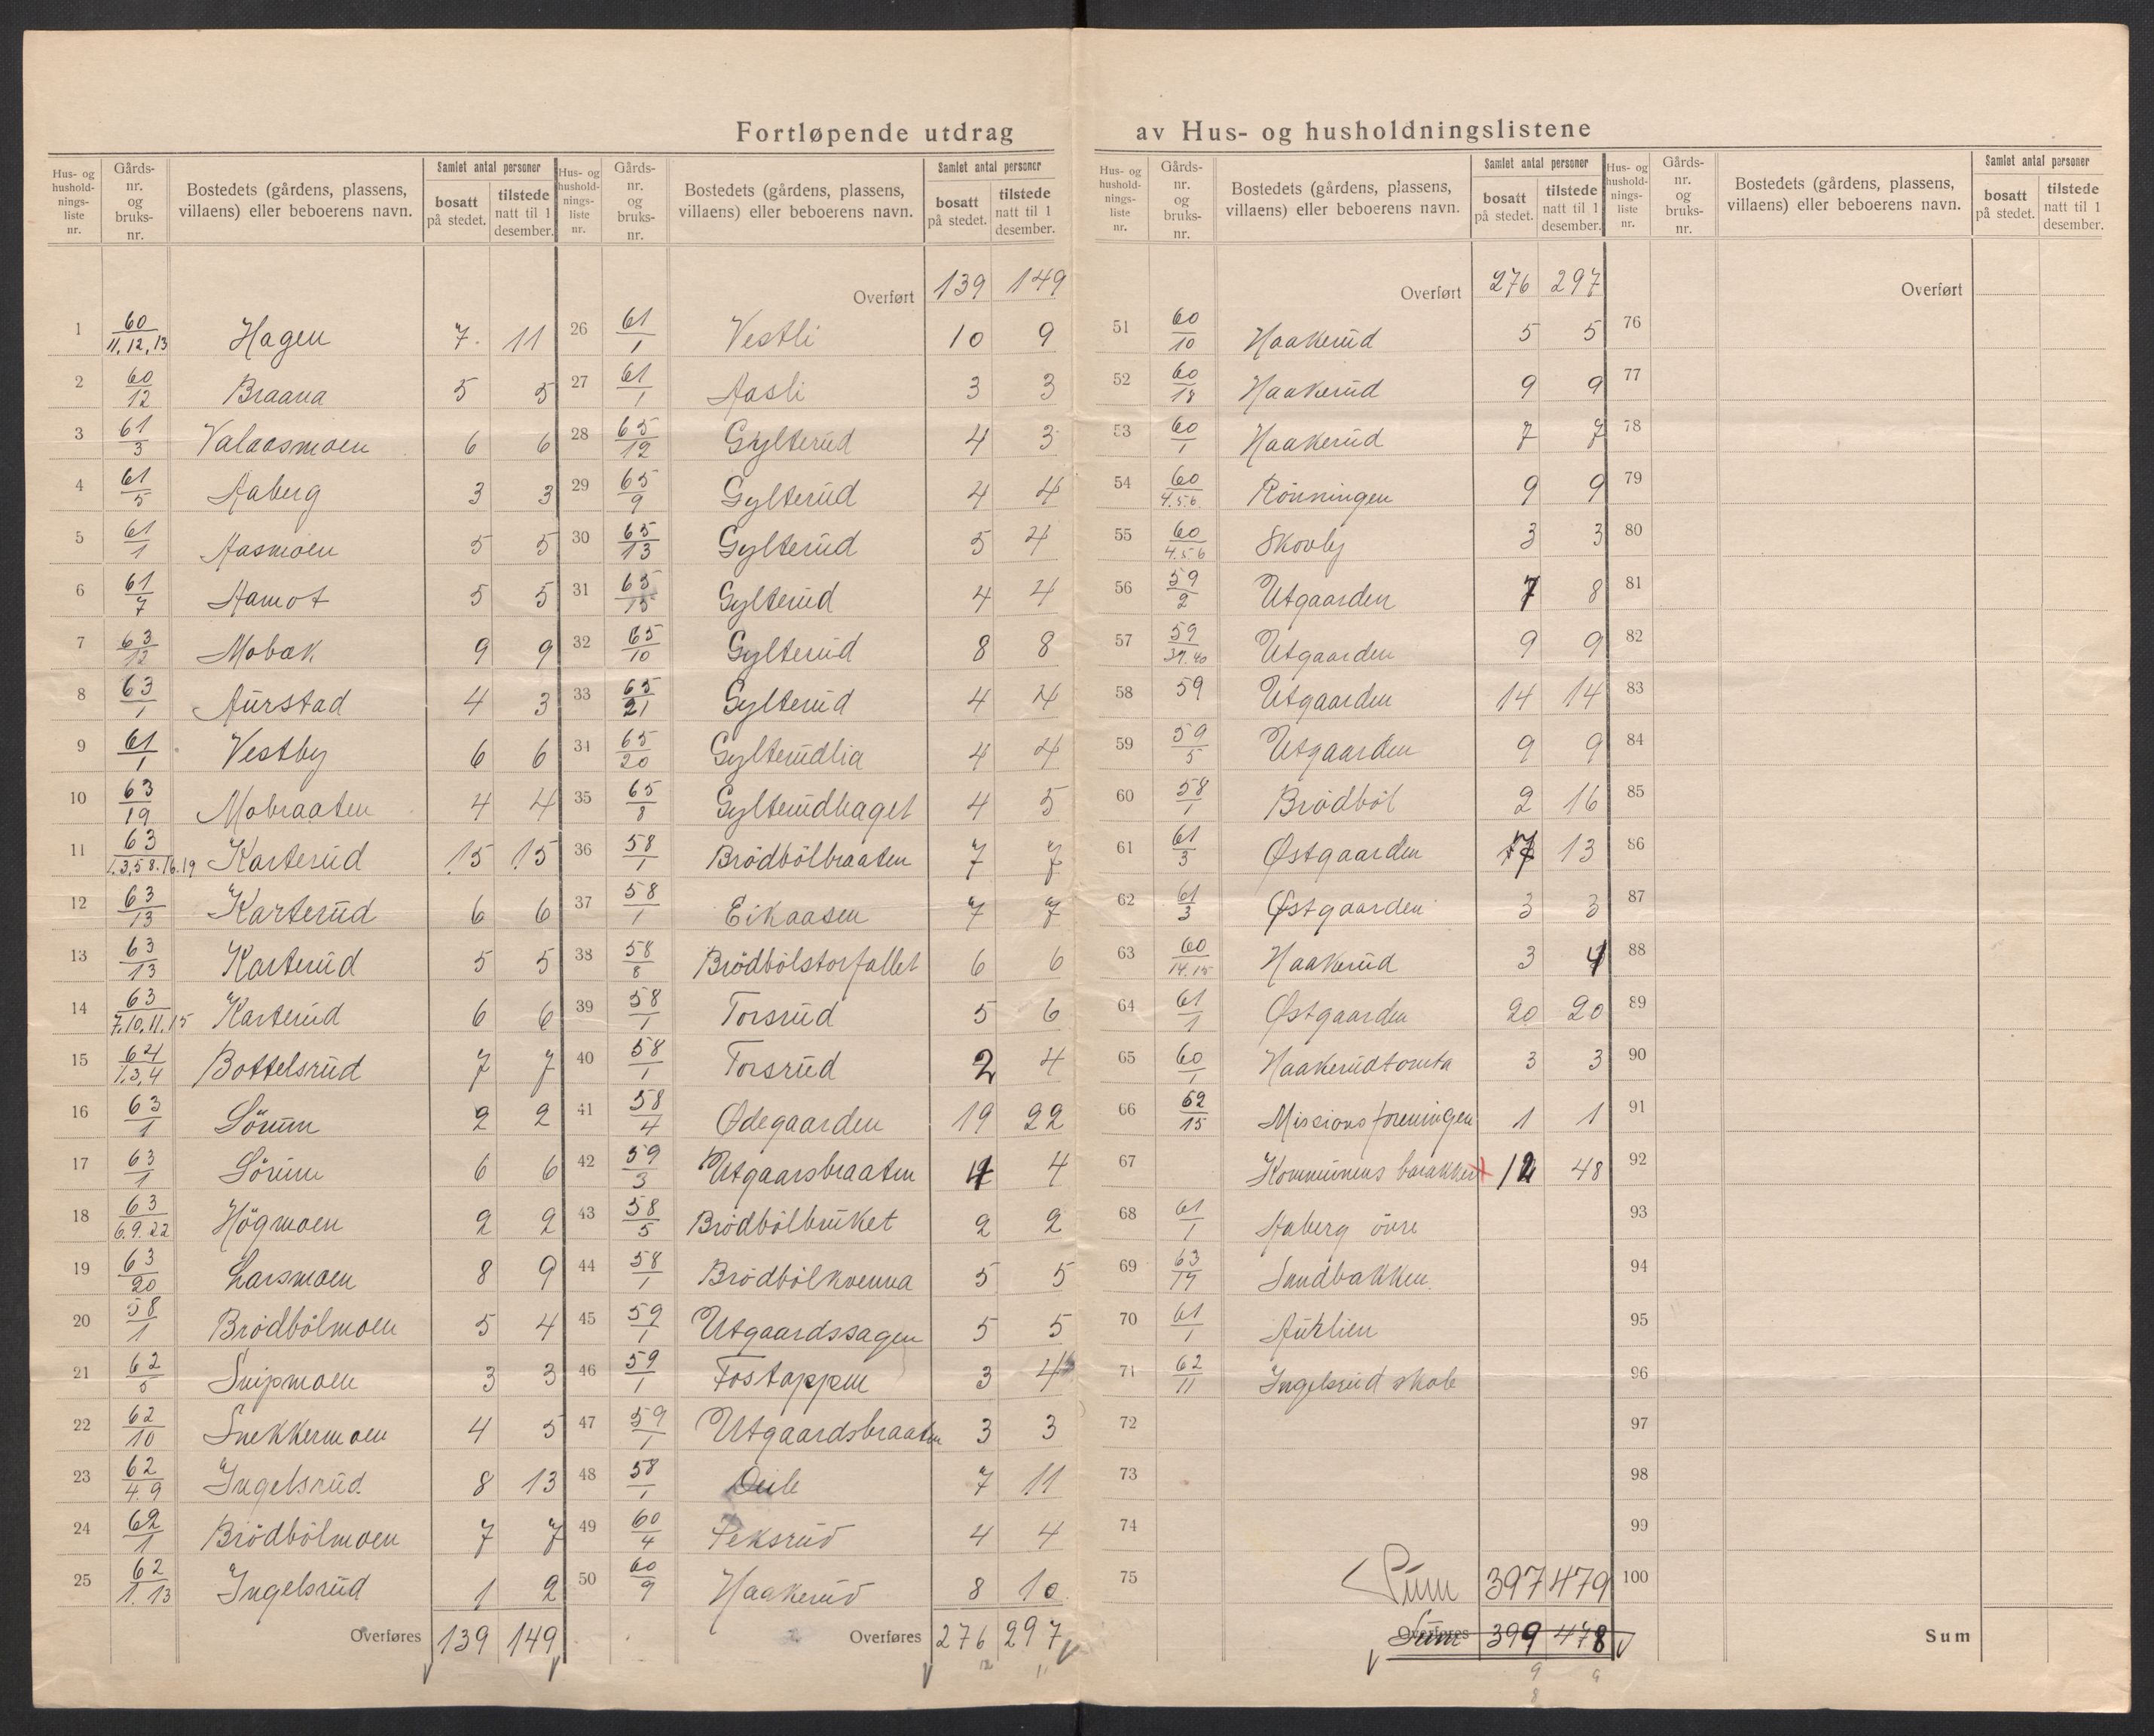 Fortløpende utdrag av Hus- og husholdningslistene
Hus- og hushold- nings- liste nr. | Gårds- nr. og bruks- nr. | Bostedets (gårdens, plassens, villaens) eller beboerens navn. | Samlet antal personer bosatt på stedet. | tilstede natt til 1 desember.
1 60/11,12,13 Hagen 7 11
2 60/12 Braana 5 5
3 61/3 Valaasmoen 6 6
4 61/5 Aaberg 3 3
5 61/1 Aasmoen 5 5
6 61/7 Aamot 5 5
7 63/12 Mobak 9 9
8 63/1 Aurstad 4 3
9 61/1 Vestby 6 6
10 63/19 Mobraaten 4 4
11 63/1.3,5 8.16.19 Karterud 15 15
12 63/13 Karterud 6 6
13 63/13 Karterud 5 5
14 63/7,10,11,15 Karterud 6 6
15 64/1,3,4 Bottelsrud 7 7
16 63/1 Sörum 2 2
17 63/1 Sörum 6 6
18 63/6.9.22 Högmoen 2 2
19 63/20 Larsmoen 8 9
20 58/1 Brödbölmoen 5 4
21 62/5 Snipmoen 3 3
22 62/10 Snekkermoen 4 5
23 62/4.9 Ingelsrud 8 13
24 62/1 Brödbölmoen 7 7
25 62/1.13 Ingelsrud 1 2
Overføres 139 149
Hus- og hushold- nings- liste nr. | Gårds- nr. og bruks- nr. | Bostedets (gårdens, plassens, villaens) eller beboerens navn. | Samlet antal personer bosatt på stedet. | tilstede natt til 1 desember.
Overført 139 149
26 61/1 Vestli 10 9
27 61/1 Aasli 3 3
28 65/12 Gylterud 4 3
29 65/9 Gylterud 4 4
30 65/13 Gylterud 5 4
31 65/15 Gylterud 4 4
32 65/10 Gylterud 8 8
33 65/21 Gylterud 4 4
34 65/20 Gylterudlia 4 4
35 65/8 Gylterudhaget 4 5
36 58/1 Brödbölbraaten 7 7
37 58/1 Eikaasen 7 7
38 58/8 Brödbölstorfallet 6 6
39 58/1 Torsrud 5 6
40 58/1 Torsrud 2 4
41 58/4 Ødegaarden 19 22
42 59/3 Utgaarsbraaten 4 4
43 58/5 Brödbölbruket 2 2
44 58/1 Brödbölkvenna 5 5
45 59/1 Utgaardssagen 5 5
46 59/1 Fostoppen 3 4
47 59/1 Utgaardsbraaten 3 3
48 58/1 7 11
49 60/4 Feksrud 4 4
50 60/9 Haakerud 8 10
Overføres 276 297
12 11
Hus- og hushold- nings- liste nr. | Gårds- nr. og bruks- nr. | Bostedets (gårdens, plassens, villaens) eller beboerens navn. | Samlet antal personer bosatt på stedet. | tilstede natt til 1 desember.
Overført 276 297
51 60/10 Haakerud 5 5
52 60/18 Haakerud 9 9
53 60/1 Haakerud 7 7
54 60/4.5.6 Rönningen 9 9
55 60/4.5.6 Skovby 3 3
56 59/2 Utgaarden 7 8
57 59/39.40 Utgaarden 9 9
58 59 Utgaarden 14 14
59 59/5 Utgaarden 9 9
60 58/1 Brödböl 2 16
61 61/3 Østgaarden 17 13
62 61/3 Østgaarden 3 3
63 60/14.15 Haakerud 3 4
64 61/1 Østgaarden 20 20
65 60/1 Haakerudtomta 3 3
66 62/15 Missionsforeningen 1 1
67 Kommunens barakker 12 48
68 61/1 Aaberg övre
69 63/19 Sandbakken
70 61/1 Auklien
71 62/11 Ingelsrud skole
72
73
74
75 Sum 397 479
Overføres Sum 399 478
9 9
8
Hus- og hushold- nings- liste nr. | Gårds- nr. og bruks- nr. | Bostedets (gårdens, plassens, villaens) eller beboerens navn. | Samlet antal personer bosatt på stedet. | tilstede natt til 1 desember.
Overført
76
77
78
79
80
81
82
83
84
85
86
87
88
89
90
91
92
93
94
95
96
97
98
99
100
Sum